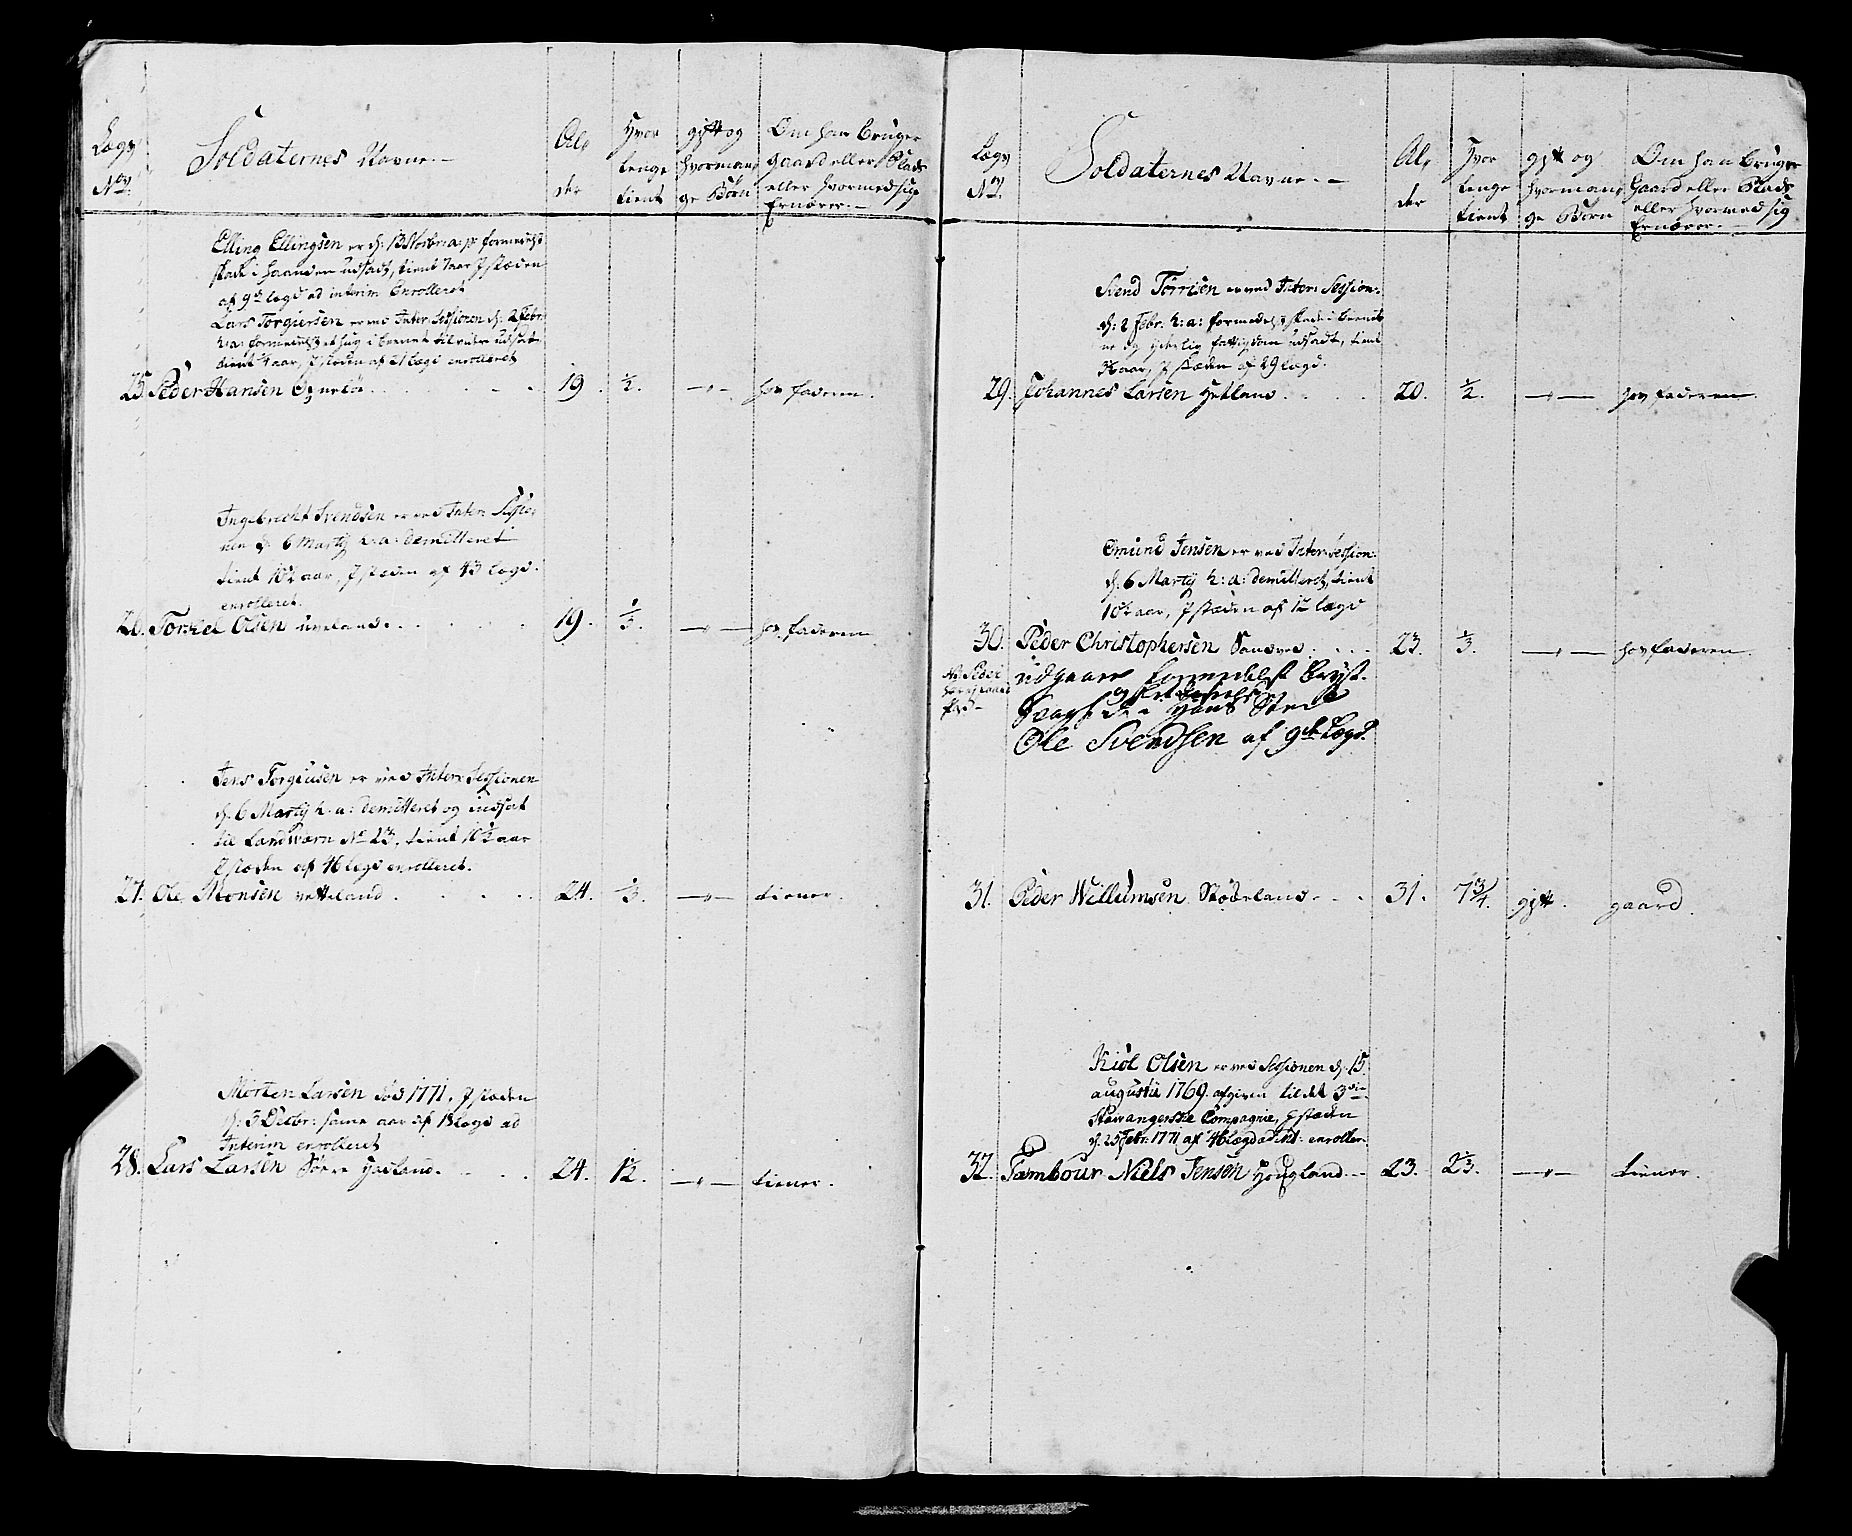 Lægs
No.
Soldaternes Navne.
Al,
der
Hvor
lenge
tient
gift og
hvorman,
ge Børn
Om han bruger
Gaard eller Plads
eller hvormed sig
Ernærer.
Elling Ellingsen er d: 13 Novbr: a: p: formedelst
skade i Haanden udsadt, tient 7 aar J stæden
af 9de legd ad interim Enrolleret
Lars Torgiersen er ved Inter: Sessionen d: 2 Febr:
h: a: formedelst et hug i beenet til videre udsadt
tient 4 aar, J steden af 21 legd enrolleret
25. Peder Hansen
19
½.
hos faderen.
Ingebrecht Svendsen er ved Inter: Sessio,
nen d: 6 Martÿ h: a: demitteret
tient 10½ aar, J stæden af 43 legd.
enrolleret.
26. Torkel Olsen ueland.
19.
⅓.
hos faderen
Jens Torgiusen er ved Inter: Sessionen
d. 6 Martÿ h. a: demitteret og indsat
til Landværn No 23, tient 10½ aar
J stæden af 46 legd enrolleret.
27. Ole Monsen vetteland
24.
⅓.
tiener.
Morten Larsen død 1771. J stæden
d: 3 Decbr: samme aar af 18 Legd ad
Interim enrolleret
28. Lars Larsen Søere Haeland.
24.
1½.
tiener.
Lægs
No.
Soldaternes Navne.
Al,
der
Hvor
lenge
tient
gift og
hvorman,
ge Børn
Om han bruger
Gaard eller Plads
eller hvormed sig
Ernærer.
Svend Torrisen er ved Inter: Session:
d: 2 Febr. h: a: formedelst skade i beenet
og fattigdom udsadt, tient
aar, J stæden af 29 legd.
29. Johannes Larsen Hetland
20.
½.
hos faderen.
Omund Jensen er ved Inter: Session:
d: 6 Martÿ h: a: demitteret, tient
10½ aar, J stæden af 12 lægd
30. Peder Christophersen Sandved
23.
⅓.
hos faderen.
Peder
udgaar formedelst Bryst
Svaghed i Hans Sted
Ole Svendsen af 9de Lægd.
31. Peder Willumsen Stødeland
31.
7¾.
gift.
gaard.
Kiøl Olsen er ved Sessionen d. 15
augustii 1769. afgiven til det 3die
Stavangerske Compagnie, J stæden
d. 25 Febr: 1771 af 46 lægd ad int: enroller:
32. Tambour Niels Jensen Hougland
23.
2⅓.
tiener.